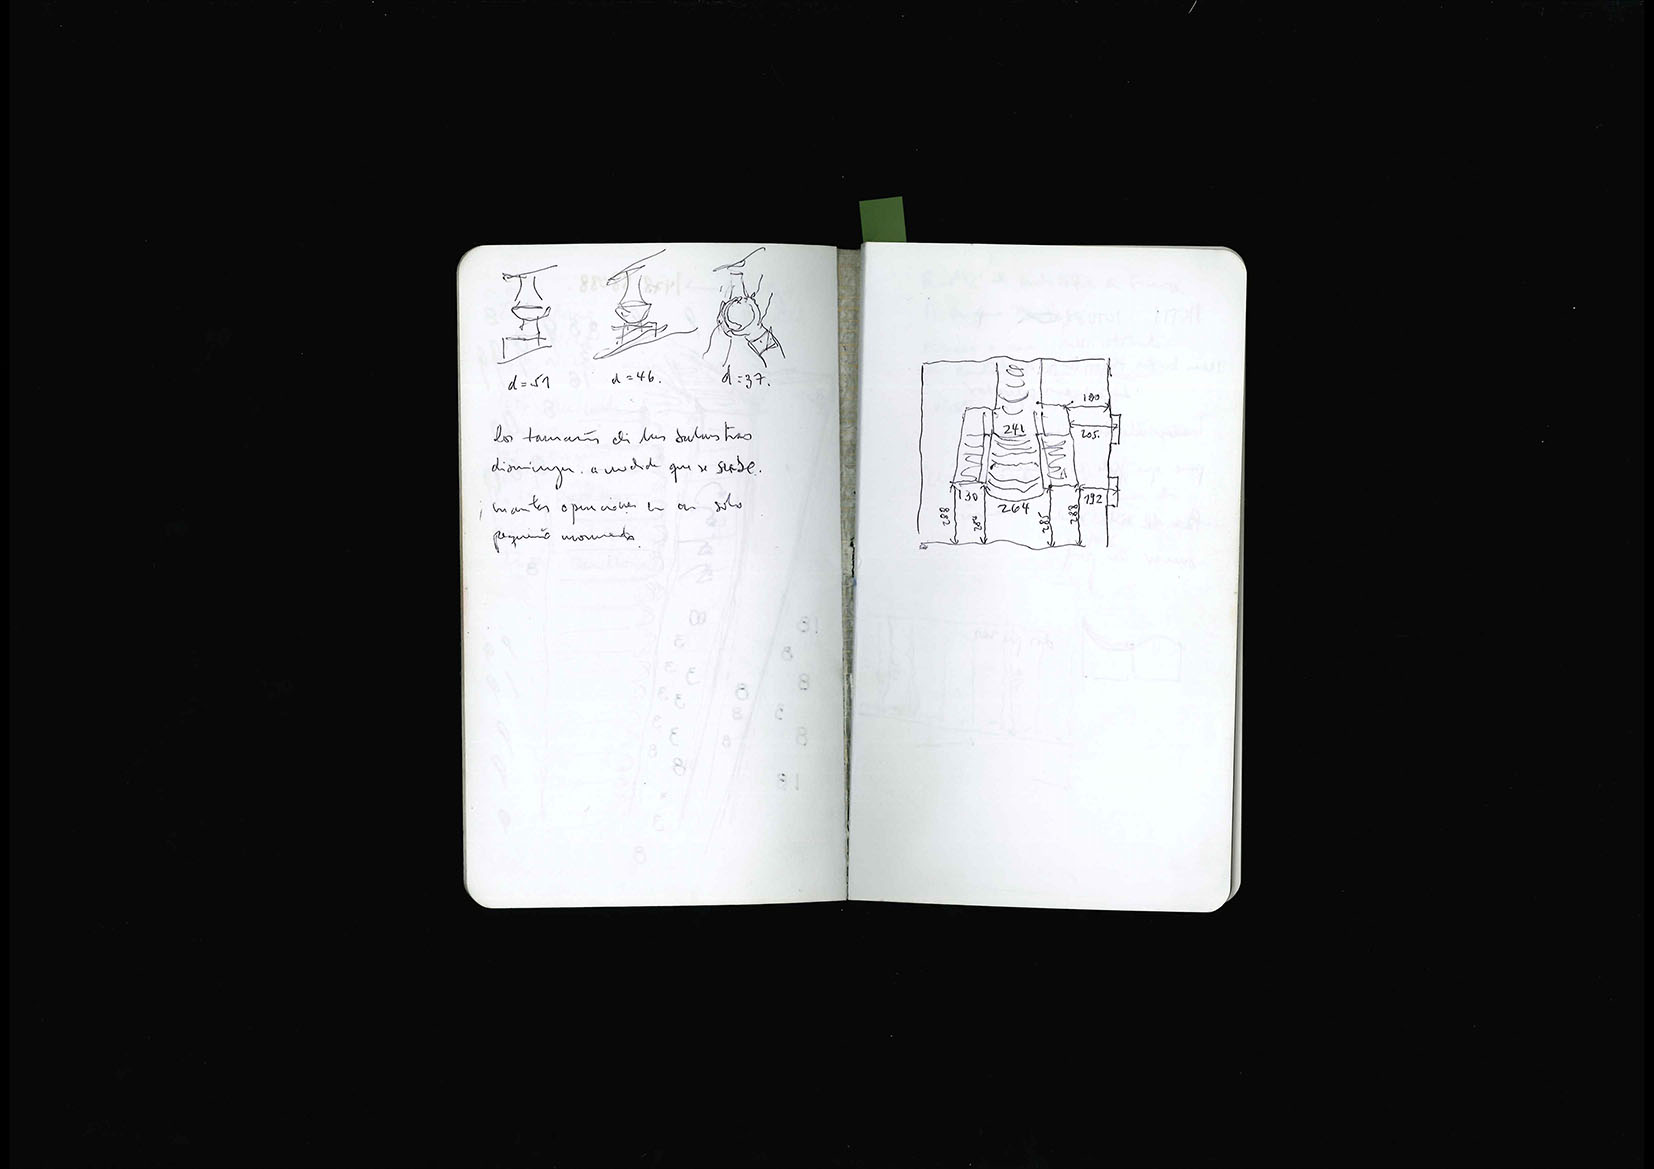 d=51
d=46.
d=37.
los tamaños de las balaustras
disminuyen. a medida que se sube.
¡ cuantas operaciones en un solo
pequeño momento.
190
241
205.
130
264
192
288
285
288